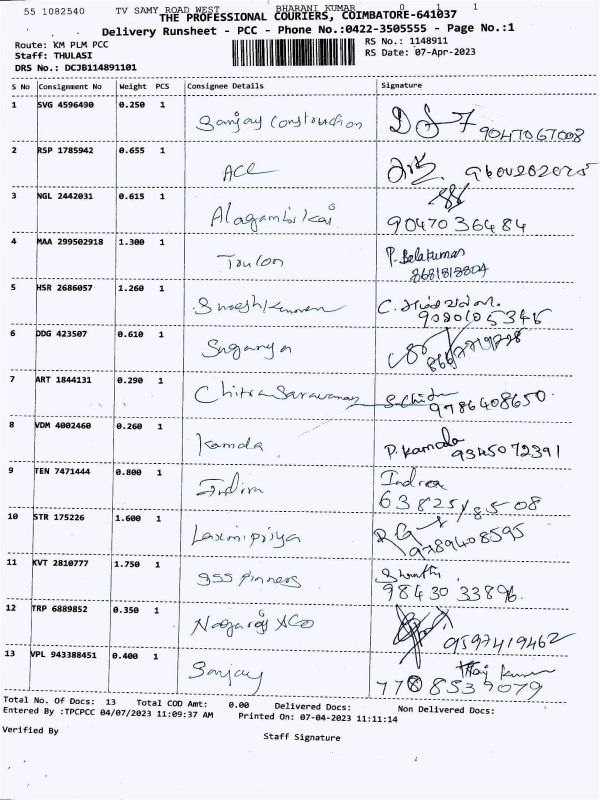 55 1082540 TV SAMY ROAD WEST BHARANI KUMAR 0 1 1
THE PROFESSIONAL COURIERS, COIMBATORE-641037
Delivery Runsheet - PCC - Phone No.:0422-3505555 - Page No.:1
Route: KM PLM PCC RS No.: 1148911
Staff: THULASI RS Date: 07-Apr-2023
DRS No.: DCJB114891101
S No Consignment No Weight PCS Consignee Details Signature
1 SVG 4596490 0.250 1 Sanjay Construction 9047067008
2 RSP 1785942 0.655 1 ACC
3 NGL 2442031 0.615 1 Alagambikai 9047036484
4 MAA 299502918 1.300 1 Toulon P. Balakumar
8681818804
5 HSR 2686057 1.260 1 C.
6 DDG 423507 0.610 1 Suganya
7 ART 1844131 0.290 1 Chitra Saravanan S. Chitra
9786408650
8 VDM 4002460 0.260 1 Kamala P. Kamala
9345072391
9 TEN 7471444 0.800 1 Indira Indira
10 STR 175226 1.600 1 Laxmipriya RG
9789408595
11 KVT 2810777 1.750 1 SSS Pinners
98430 33896
12 TRP 6889852 0.350 1 Nagaraj &CO 9597419462
13 VPL 943388451 0.400 1 Sanjay Kumar
Total No. Of Docs: 13 Total COD Amt: 0.00 Delivered Docs: Non Delivered Docs:
Entered By :TPCPCC 04/07/2023 11:09:37 AM Printed On: 07-04-2023 11:11:14
Verified By
Staff Signature